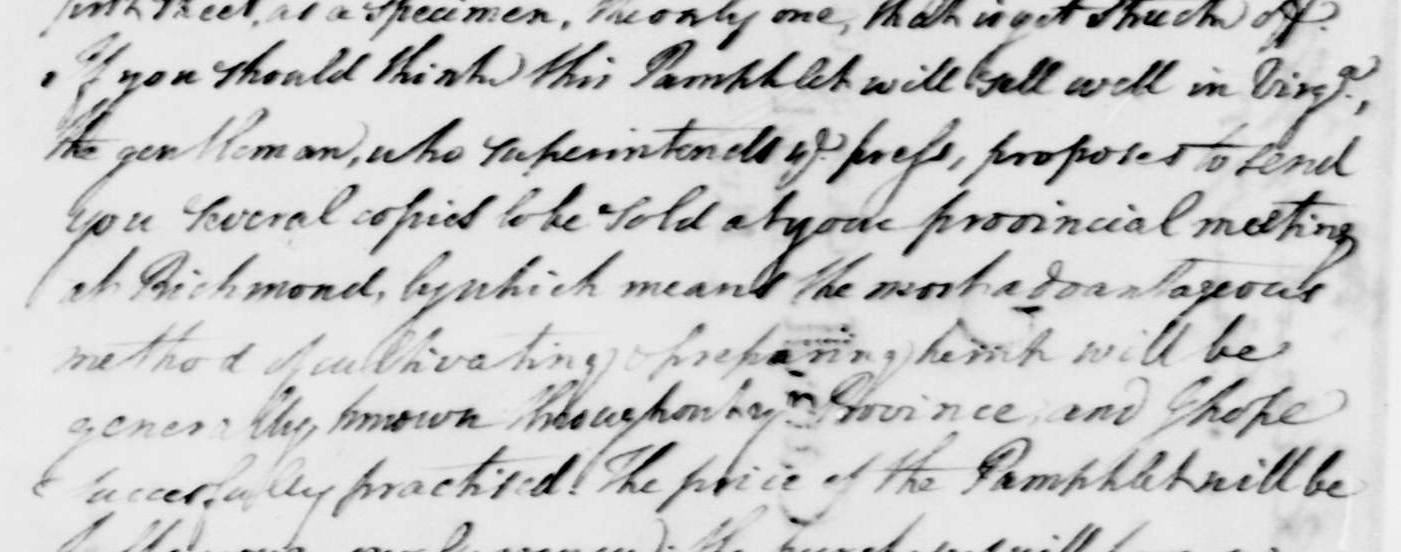 sheet, as a Specimen, the only one, that is yet struck off.
If you should think this Pamphlet will sell well in Virgᵃ.,
the gentleman, who superintends yᵉ press, proposes to send
you several copies to be sold at your provincial meeting
at Richmond, by which means the most advantageous
method of cultivating & preparing hemp will be
generally known throughout yʳ Province, and I hope
successfully practised. The price of the Pamphlet will be